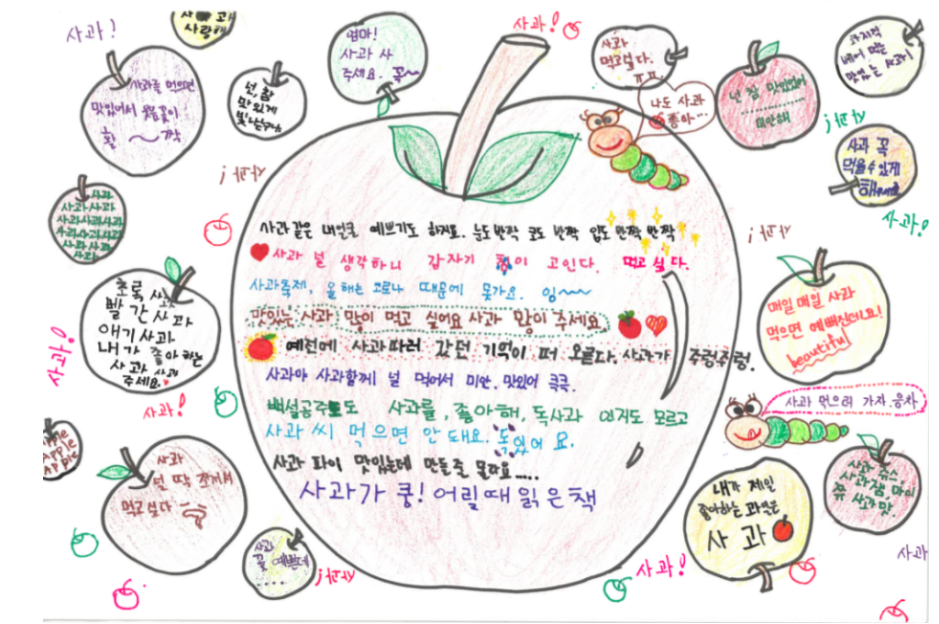 사과!
사랑해
엄마!
사과 사
주세요.
사과!
사과
먹고싶다.
ㅠㅠ
과자처럼
맛있는 사과!
사과를 먹으면
맛있어서 웃음꽃이
활 ~ 짝
넌, 참
맛있게
나도 사과
좋아...
넌 참 맛있었어
미안해
사과!
사과 꼭
먹을수있게
해주세요
사과!
사과
사과사과
사과사과사과
사과사과사과
사과사과
사과
사과!
사과!
사과같은 내얼굴 예쁘기도 하지요. 눈도 반짝 코도 반짝 입도 반짝 반짝
사과 널 생각하니 갑자기 침이 고인다. 먹고 싶다.
사과축제, 올해는 코로나 때문에 못가요. 잉~~~
맛있는 사과 많이 먹고 싶어요 사과 많이 주세요
예전에 사과따러 갔던 기억이 떠 오른다. 사과가 주렁주렁.
사과야 사과할께 널 먹어서 미안. 맛있어 쿡쿡.
백설공주도 사과를, 좋아해, 독사과 인지도 모르고
사과 씨 먹으면 안 돼요. 독있어요.
사과 파이 맛있는데 만들줄 몰라요....
사과가 쿵! 어릴때 읽은 책
초록 사과
빨간 사과
애기사과
내가 좋아하는
사과 사과
주세요.
사과!
사과!
매일매일 사과
먹으면 예뻐진데요!
beautiful
사과 먹으러 가자. 웅차
Apple
Apple
Apple
사과
널 딱 쪼개서
먹고싶다
사과
꽃 예쁜데
사과!
사과!
내가 제일
좋아하는 과일은
사과
사과 쥬스
사과잼,
사과맛.
사과